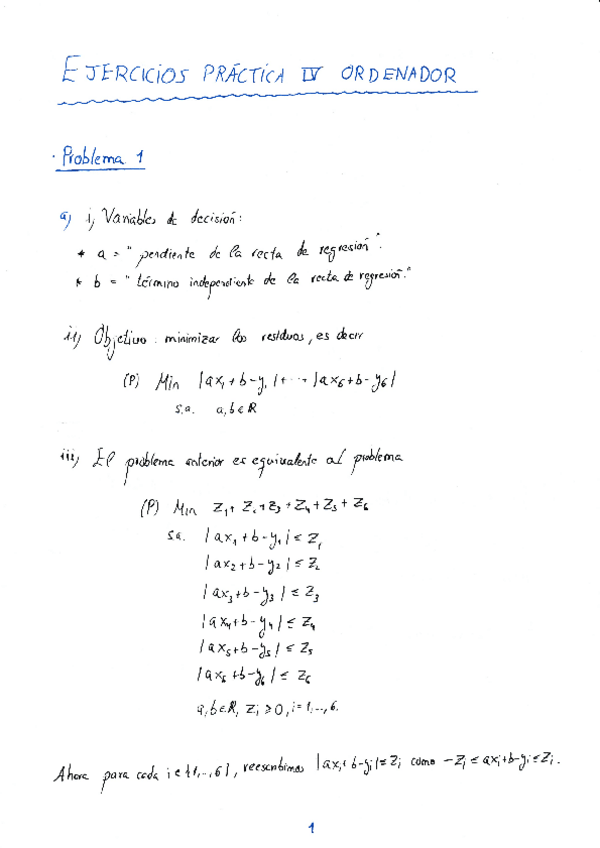 EJERCICIOS PRÁCTICA IV ORDENADOR
· Problema 1
a) i) Variables de decisión:
* a = "pendiente de la recta de regresión".
* b = "término independiente de la recta de regresión."
ii) Objetivo: minimizar los residuos, es decir
(P) Min |ax₁+b-y₁|+···+|ax₆+b-y₆|
s.a. a,b∈ℝ
iii) El problema anterior es equivalente al problema
(P) Min Z₁+Z₂+Z₃+Z₄+Z₅+Z₆
s.a. |ax₁+b-y₁|≤Z₁
|ax₂+b-y₂|≤Z₂
|ax₃+b-y₃|≤Z₃
|ax₄+b-y₄|≤Z₄
|ax₅+b-y₅|≤Z₅
|ax₆+b-y₆|≤Z₆
a,b∈ℝ, Zᵢ≥0, i=1,...,6.
Ahora para cada i∈{1,...,6}, reescribimos |axᵢ+b-yᵢ|≤Zᵢ como -Zᵢ≤axᵢ+b-yᵢ≤Zᵢ.
1